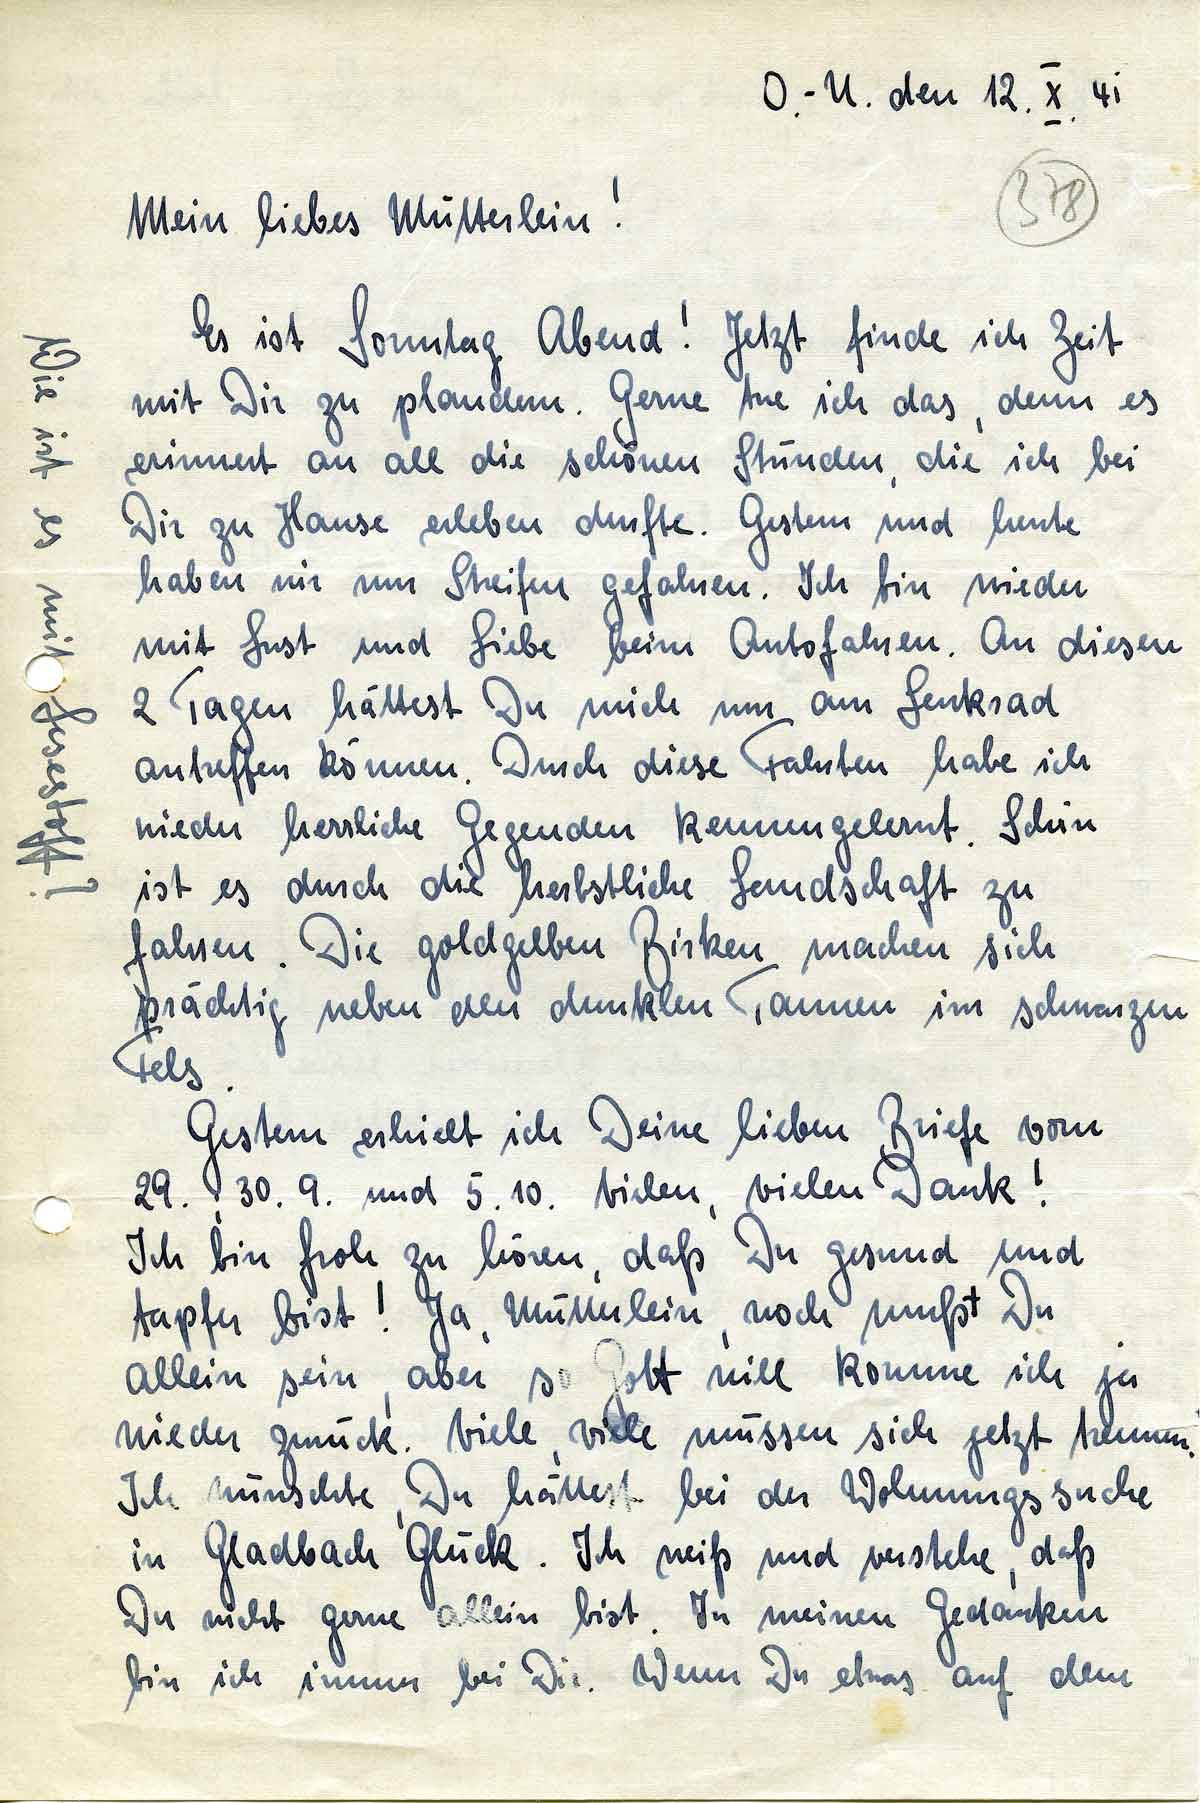 O.-U. den 12. X. 41
378
Mein liebes Mütterlein!
Es ist Sonntag Abend! Jetzt finde ich Zeit
mit Dir zu plaudern. Gerne tue ich das, denn es
erinnert an all die schönen Stunden, die ich bei
Dir zu Hause erleben durfte. Gestern und heute
haben wir nun Streifen gefahren. Ich bin wieder
mit Lust und Liebe beim Autofahren. An diesen
2 Tagen hättest Du mich nur am Lenkrad
antreffen können. Durch diese Fahrten habe ich
wieder herrliche Gegenden kennengelernt. Schön
ist es durch die herbstliche Landschaft zu
fahren. Die goldgelben Birken machen sich
prächtig neben den dunklen Tannen im schwarzen
Fels.
Gestern erhielt ich Deine lieben Briefe vom
29., 30. 9. und 5. 10. Vielen, vielen Dank!
Ich bin froh zu hören, daß Du gesund und
tapfer bist! Ja, Mütterlein, noch mußt Du
allein sein, aber so Gott will komme ich ja
wieder zurück. Viele, viele müssen sich jetzt trennen.
Ich wünschte, Du hättest bei der Wohnungssuche
in Gladbach Glück. Ich weiß und verstehe, daß
Du nicht gerne allein bist. In meinen Gedanken
bin ich immer bei Dir. Wenn Du etwas auf dem
Wie ist es mit Lesestoff?